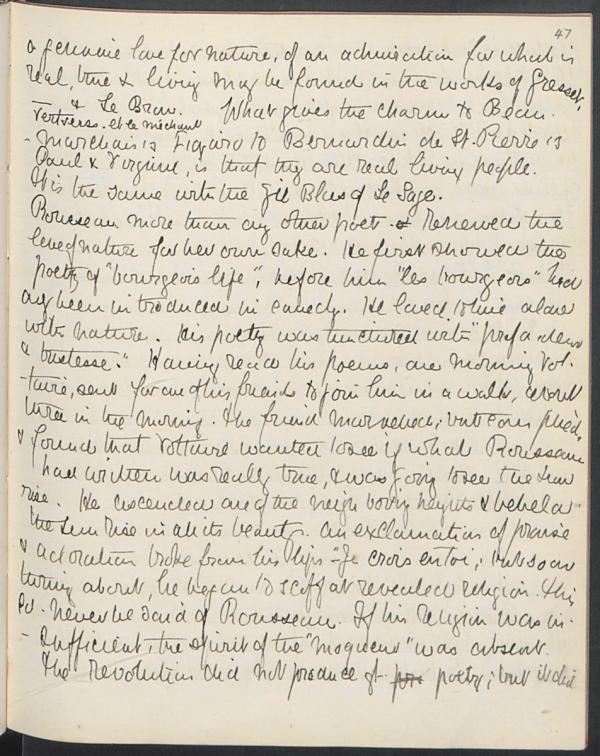 47
a genuine love for nature, of an admiration for what is
real, true & living may be found in the works of Gresset,
— & Le Brun. What gives the charm to Beau-
Vertvers. et le méchant
- marchais's Figaro to Bernardin de St. Pierre's
Paul & Virginie, is that they are real living people.
It is the same with the Gil Blas of Le Sage.
Rousseau more than any other poet renewed the
love of nature for her own sake. He first showed the
poetry of "bourgeois life", before him "les bourgeois" had
only been introduced in comedy. He loved to live alone
with nature. His poetry was tinctured with "profondeur
& tristesse." Having read his poems, one morning Vol-
taire, sent for one of his friends to join him in a walk, about
three in the morning. The friend marvelled; but complied,
& found that Voltaire wanted to see if what Rousseau
had written was really true, & was going to see the sun
rise. He ascended one of the neighboring heights & beheld
the sun rise in all its beauty. An exclamation of praise
& adoration broke from his lips "Je crois en toi", but soon
turning about, he began to scoff at revealed religion. This
cd. never be said of Rousseau. If his religion was in-
- sufficient, the spirit of the "moqueur" was absent.
The Revolution did not produce gt. poetry; but it did